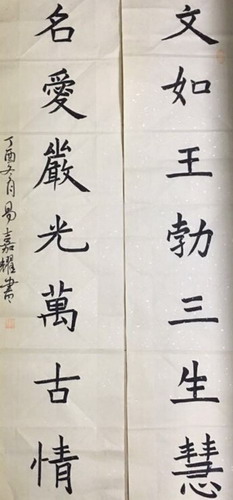 文如王勃三生慧
名愛嚴光萬古情
丁酉冬月易嘉耀書